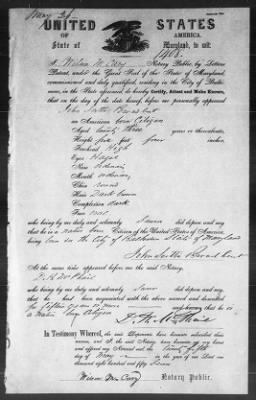 UNITED STATES
OF AMERICA.
State of Maryland, to wit:
I, Wilson M Cary Notary Public, by Letters
Patent, under the Great Seal of the State of Maryland,
commissioned and duly qualified, residing in the City of
in the State aforesaid, do hereby Certify, Attest and Make Known,
that on the day of the date hereof, before me personally appeared
John
an American born Citizen
Aged twenty three years or thereabouts,
Height five feet four inches
Forehead High
Eyes Hazel
Nose ordinary
Mouth ordinary
Chin round
Hair Dark brown
Complexion dark
Face oval
who being by me duly and solemnly sworn did depose and say
that he is a native born Citizen of the United States of America
being born in the City of Baltimore State of Maryland
John
At the same time appeared before me the said Notary,
who being by me duly and solemnly sworn did depose and say
that he had been acquainted with the above named and described
for fifteen years or more and knowing that he is
a Native born Citizen
In Testimony Whereof, the said Deponents have hereunto subscribed their
names, and I, the said Notary, have hereunto set my hand
and affixed my Notarial Seal the twenty fifth
day of May in the year of our Lord one
thousand eight hundred and fifty
Wilson M Cary Notary Public.